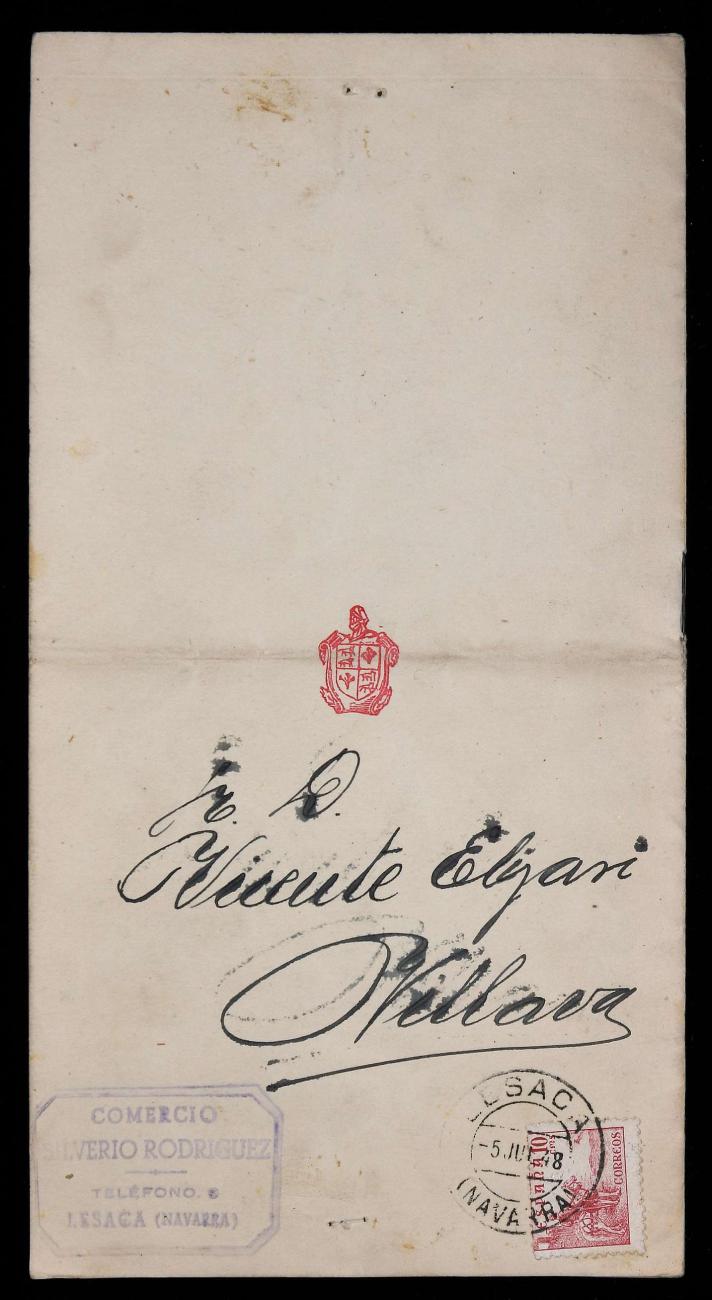 Sr. D.
Vicente Elgari
Villava
COMERCIO
SILVERIO RODRIGUEZ
TELÉFONO, 8
LESACA (NAVARRA)
LESACA
-5 JUL 48
(NAVARRA)
ESPAÑA 10 CTS
CORREOS